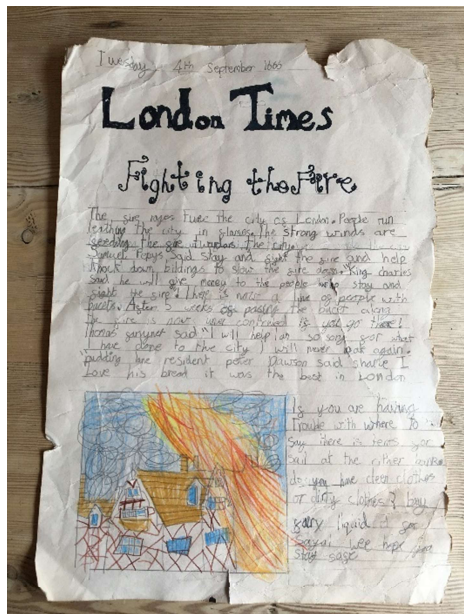 Tuesday 4th September 1666
London Times
Fighting the Fire
The fire rages the city of London. People run
leaving the city in flames. The strong winds are
feeding the fire the city.
Samuel Pepys said stay and fight the fire and help
knock down bildings to slow the fire down. King charles
said he will give money to the people who stay and
fight the fire. Ther is now a line of people with
After 5 weeks of passing the along
the fire is now
Thomas said "I will help
I have done to the city I will never again.
pudding lane resident peter Dawson said shame I
Love his bread it was the best in London
If you are having
trouble with where to
Say there is tents for
Sail at the
do you have cleen clothes
or dirty clothes? buy
liquid
wee hope you
stay safe